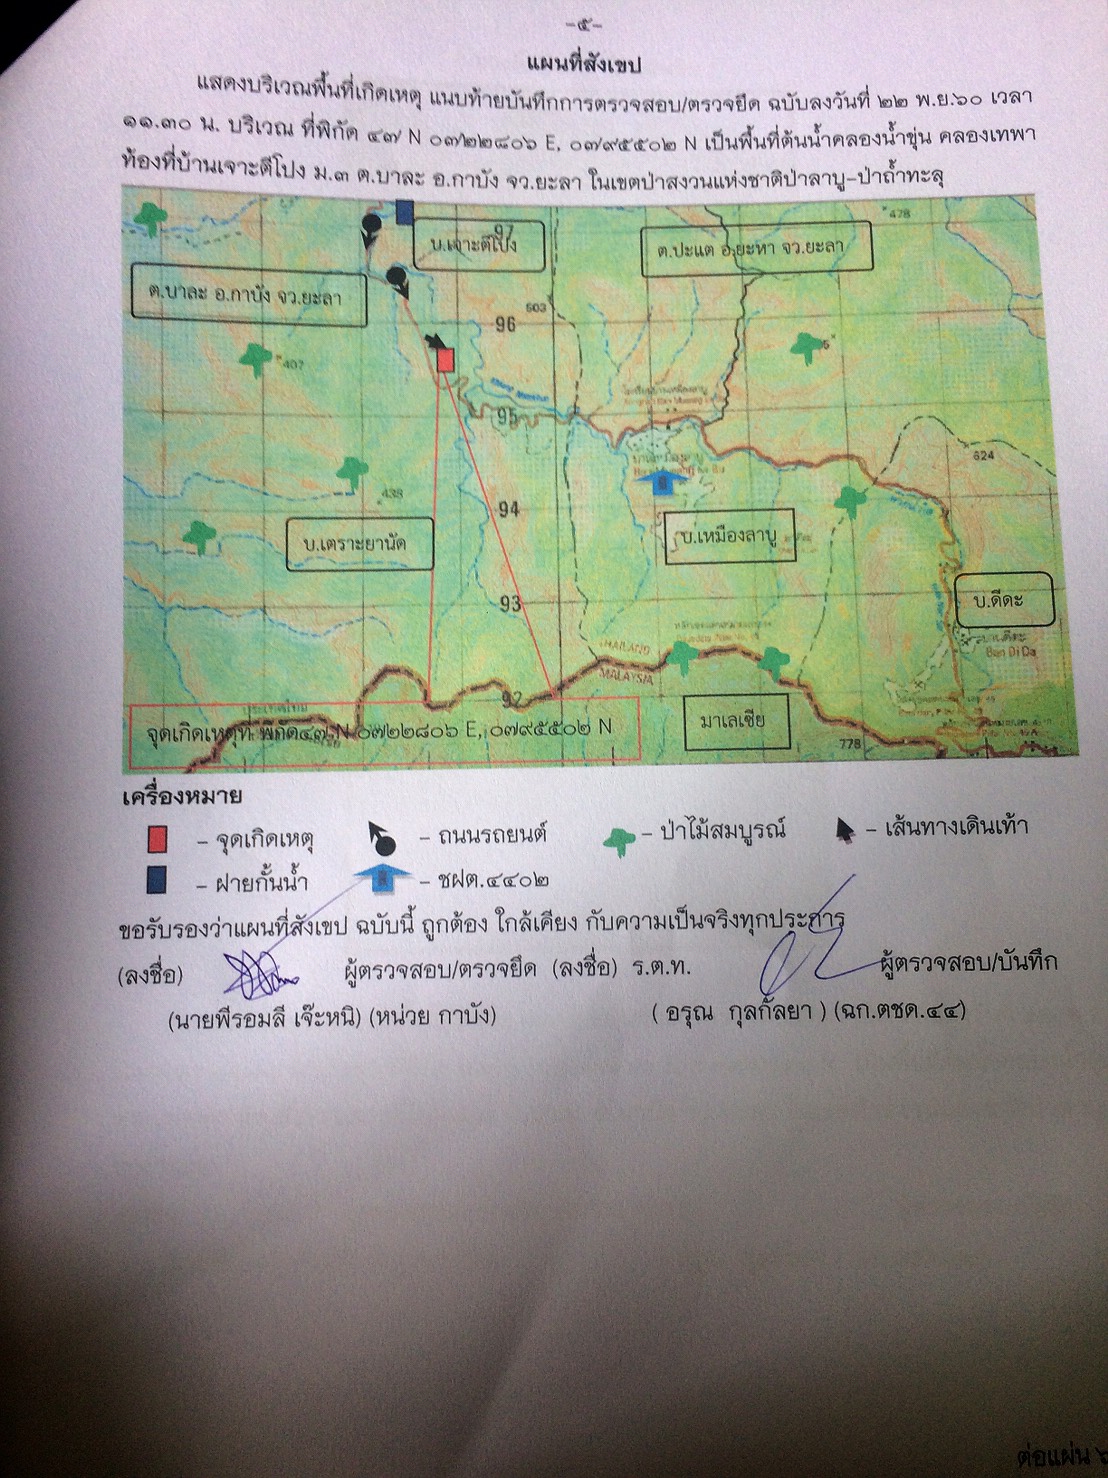 -๕-
แผนที่สังเขป
แสดงบริเวณพื้นที่เกิดเหตุ แนบท้ายบันทึกการตรวจสอบ/ตรวจยึด ฉบับลงวันที่ ๒๒ พ.ย.๖๐ เวลา
๑๑.๓๐ น. บริเวณ ที่พิกัด ๔๗ N ๐๗๒๒๘๐๖ E, ๐๗๙๕๕๐๒ N เป็นพื้นที่ต้นน้ำคลองน้ำขุ่น คลองเทพา
ท้องที่บ้านเจาะตีโปง ม.๓ ต.บาละ อ.กาบัง จว.ยะลา ในเขตป่าสงวนแห่งชาติป่าลาบู-ป่าถ้ำทะลุ
478
97
บ.เจาะตีโปง
ต.ปะแต อ.ยะหา จว.ยะลา
ต.บาละ อ.กาบัง จว.ยะลา
503
96
407
95
624
438
94
บ.เตราะยานัด
บ.เหมืองลาบู
93
บ.ดีดะ
บ้านดีดะ
Ban Di Da
THAILAND
MALAYSIA
92
จุดเกิดเหตุที่ พิกัด๔๗ N ๐๗๒๒๘๐๖ E, ๐๗๙๕๕๐๒ N
มาเลเซีย
778
เครื่องหมาย
- จุดเกิดเหตุ - ถนนรถยนต์ - ป่าไม้สมบูรณ์ - เส้นทางเดินเท้า
- ฝายกั้นน้ำ - ชฝต.๔๔๐๒
ขอรับรองว่าแผนที่สังเขป ฉบับนี้ ถูกต้อง ใกล้เคียง กับความเป็นจริงทุกประการ
(ลงชื่อ) ผู้ตรวจสอบ/ตรวจยึด (ลงชื่อ) ร.ต.ท. ผู้ตรวจสอบ/บันทึก
(นายพีรอมลี เจ๊ะหนิ) (หน่วย กาบัง) ( อรุณ กุลกัลยา ) (ฉก.ตชด.๔๔)
ต่อแผ่น ๖